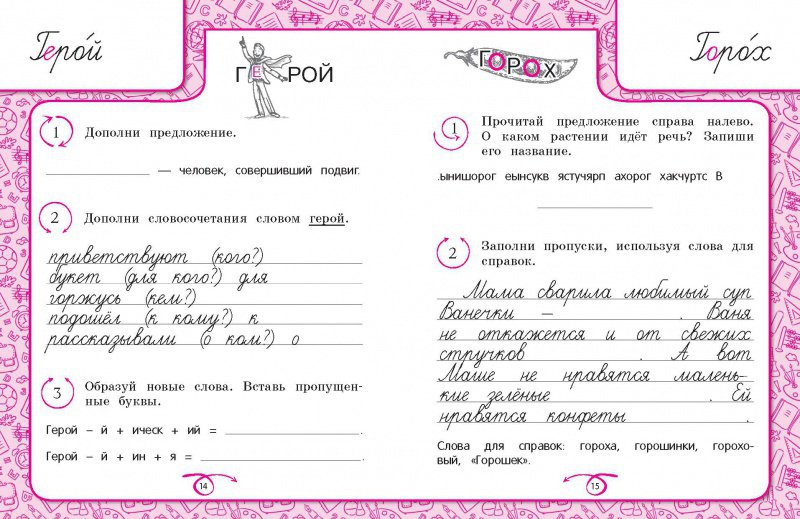 Герой
ГЕРОЙ
1 Дополни предложение.
— человек, совершивший подвиг.
2 Дополни словосочетания словом герой.
приветствуют (кого?)
букет (для кого?) для
горжусь (кем?)
подошёл (к кому?) к
рассказывали (о ком?) о
3 Образуй новые слова. Вставь пропущен-
ные буквы.
Герой – й + ическ + ий =
Герой – й + ин + я =
14
Горо́х
ГОРОХ
1 Прочитай предложение справа налево.
О каком растении идёт речь? Запиши
его название.
.ынишорог еынсукв ястучярп ахорог хакчуртс В
2 Заполни пропуски, используя слова для
справок.
Мама сварила любимый суп
Ванечки – . Ваня
не откажется и от свежих
стручков . А вот
Маше не нравятся малень-
кие зелёные . Ей
нравятся конфеты .
Слова для справок: гороха, горошинки, горохо-
вый, «Горошек».
15